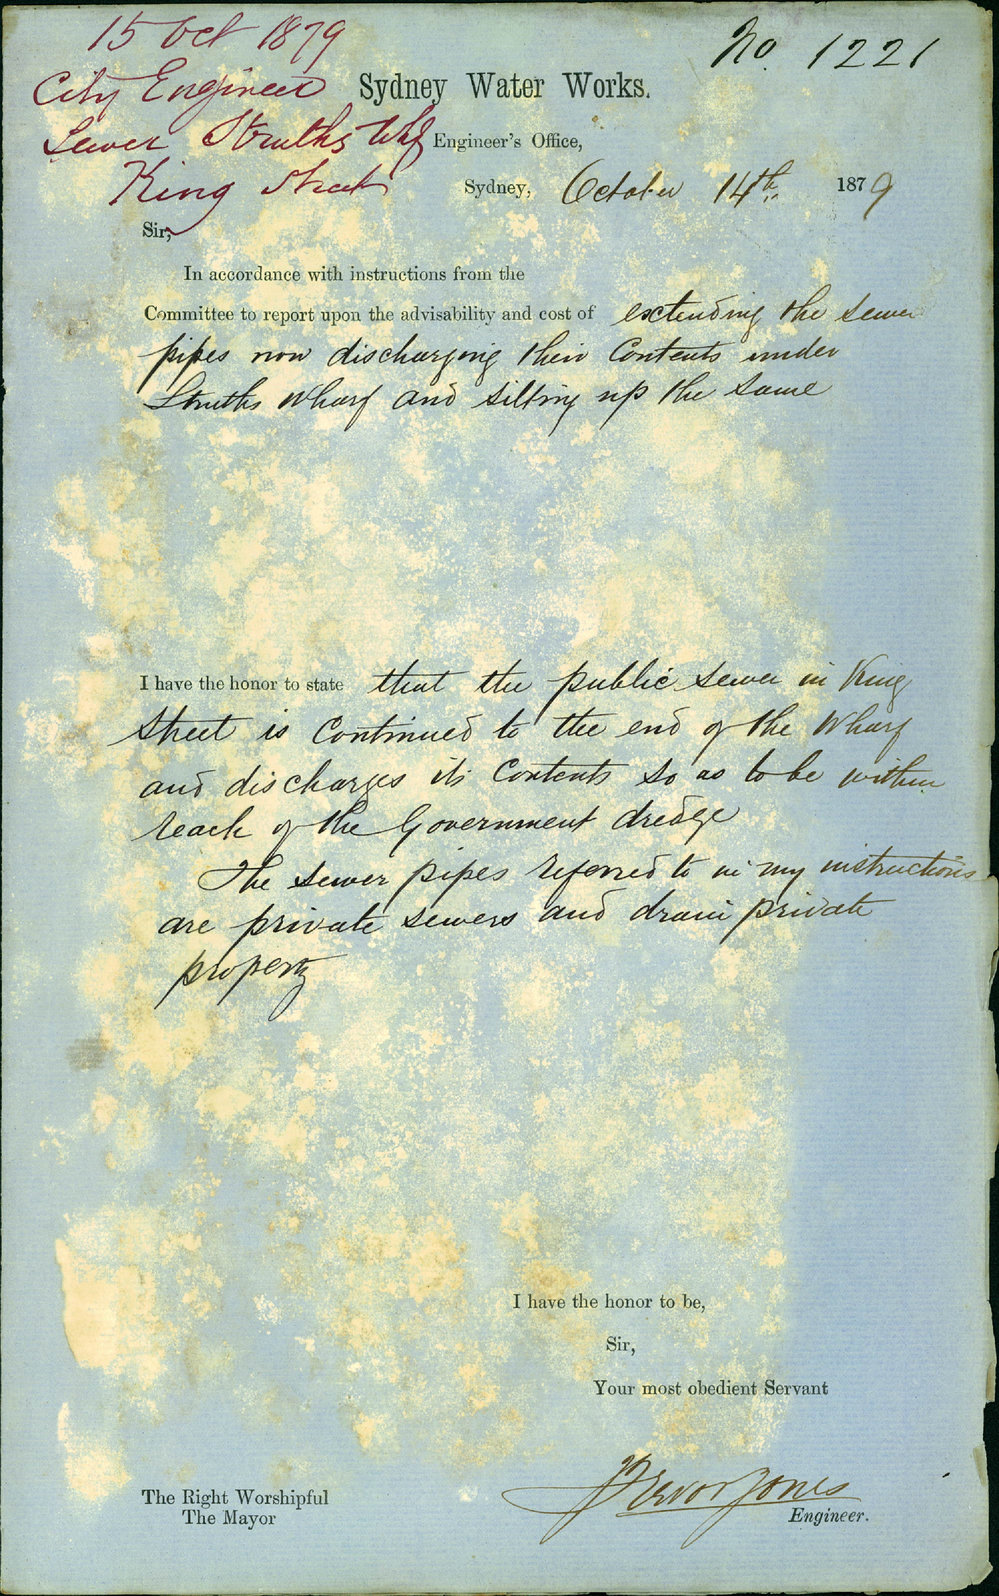 15 Oct 1879
No. 1221
City Engineer
Sydney Water Works.
Sewer Struths Whf
Engineer's Office,
King Street
Sydney, October 14th 1879
Sir,
In accordance with instructions from the
Committee to report upon the advisability and cost of extending the sewer
pipes now discharging their Contents under
Struths Wharf and silting up the same
I have the honor to state that the public sewer in King
Street is Continued to the end of the Wharf
and discharges its Contents so as to be within
reach of the Government dredge
The sewer pipes referred to in my instructions
are private sewers and drain private
property
I have the honor to be,
Sir,
Your most obedient Servant
Trevor Jones
The Right Worshipful
Engineer.
The Mayor